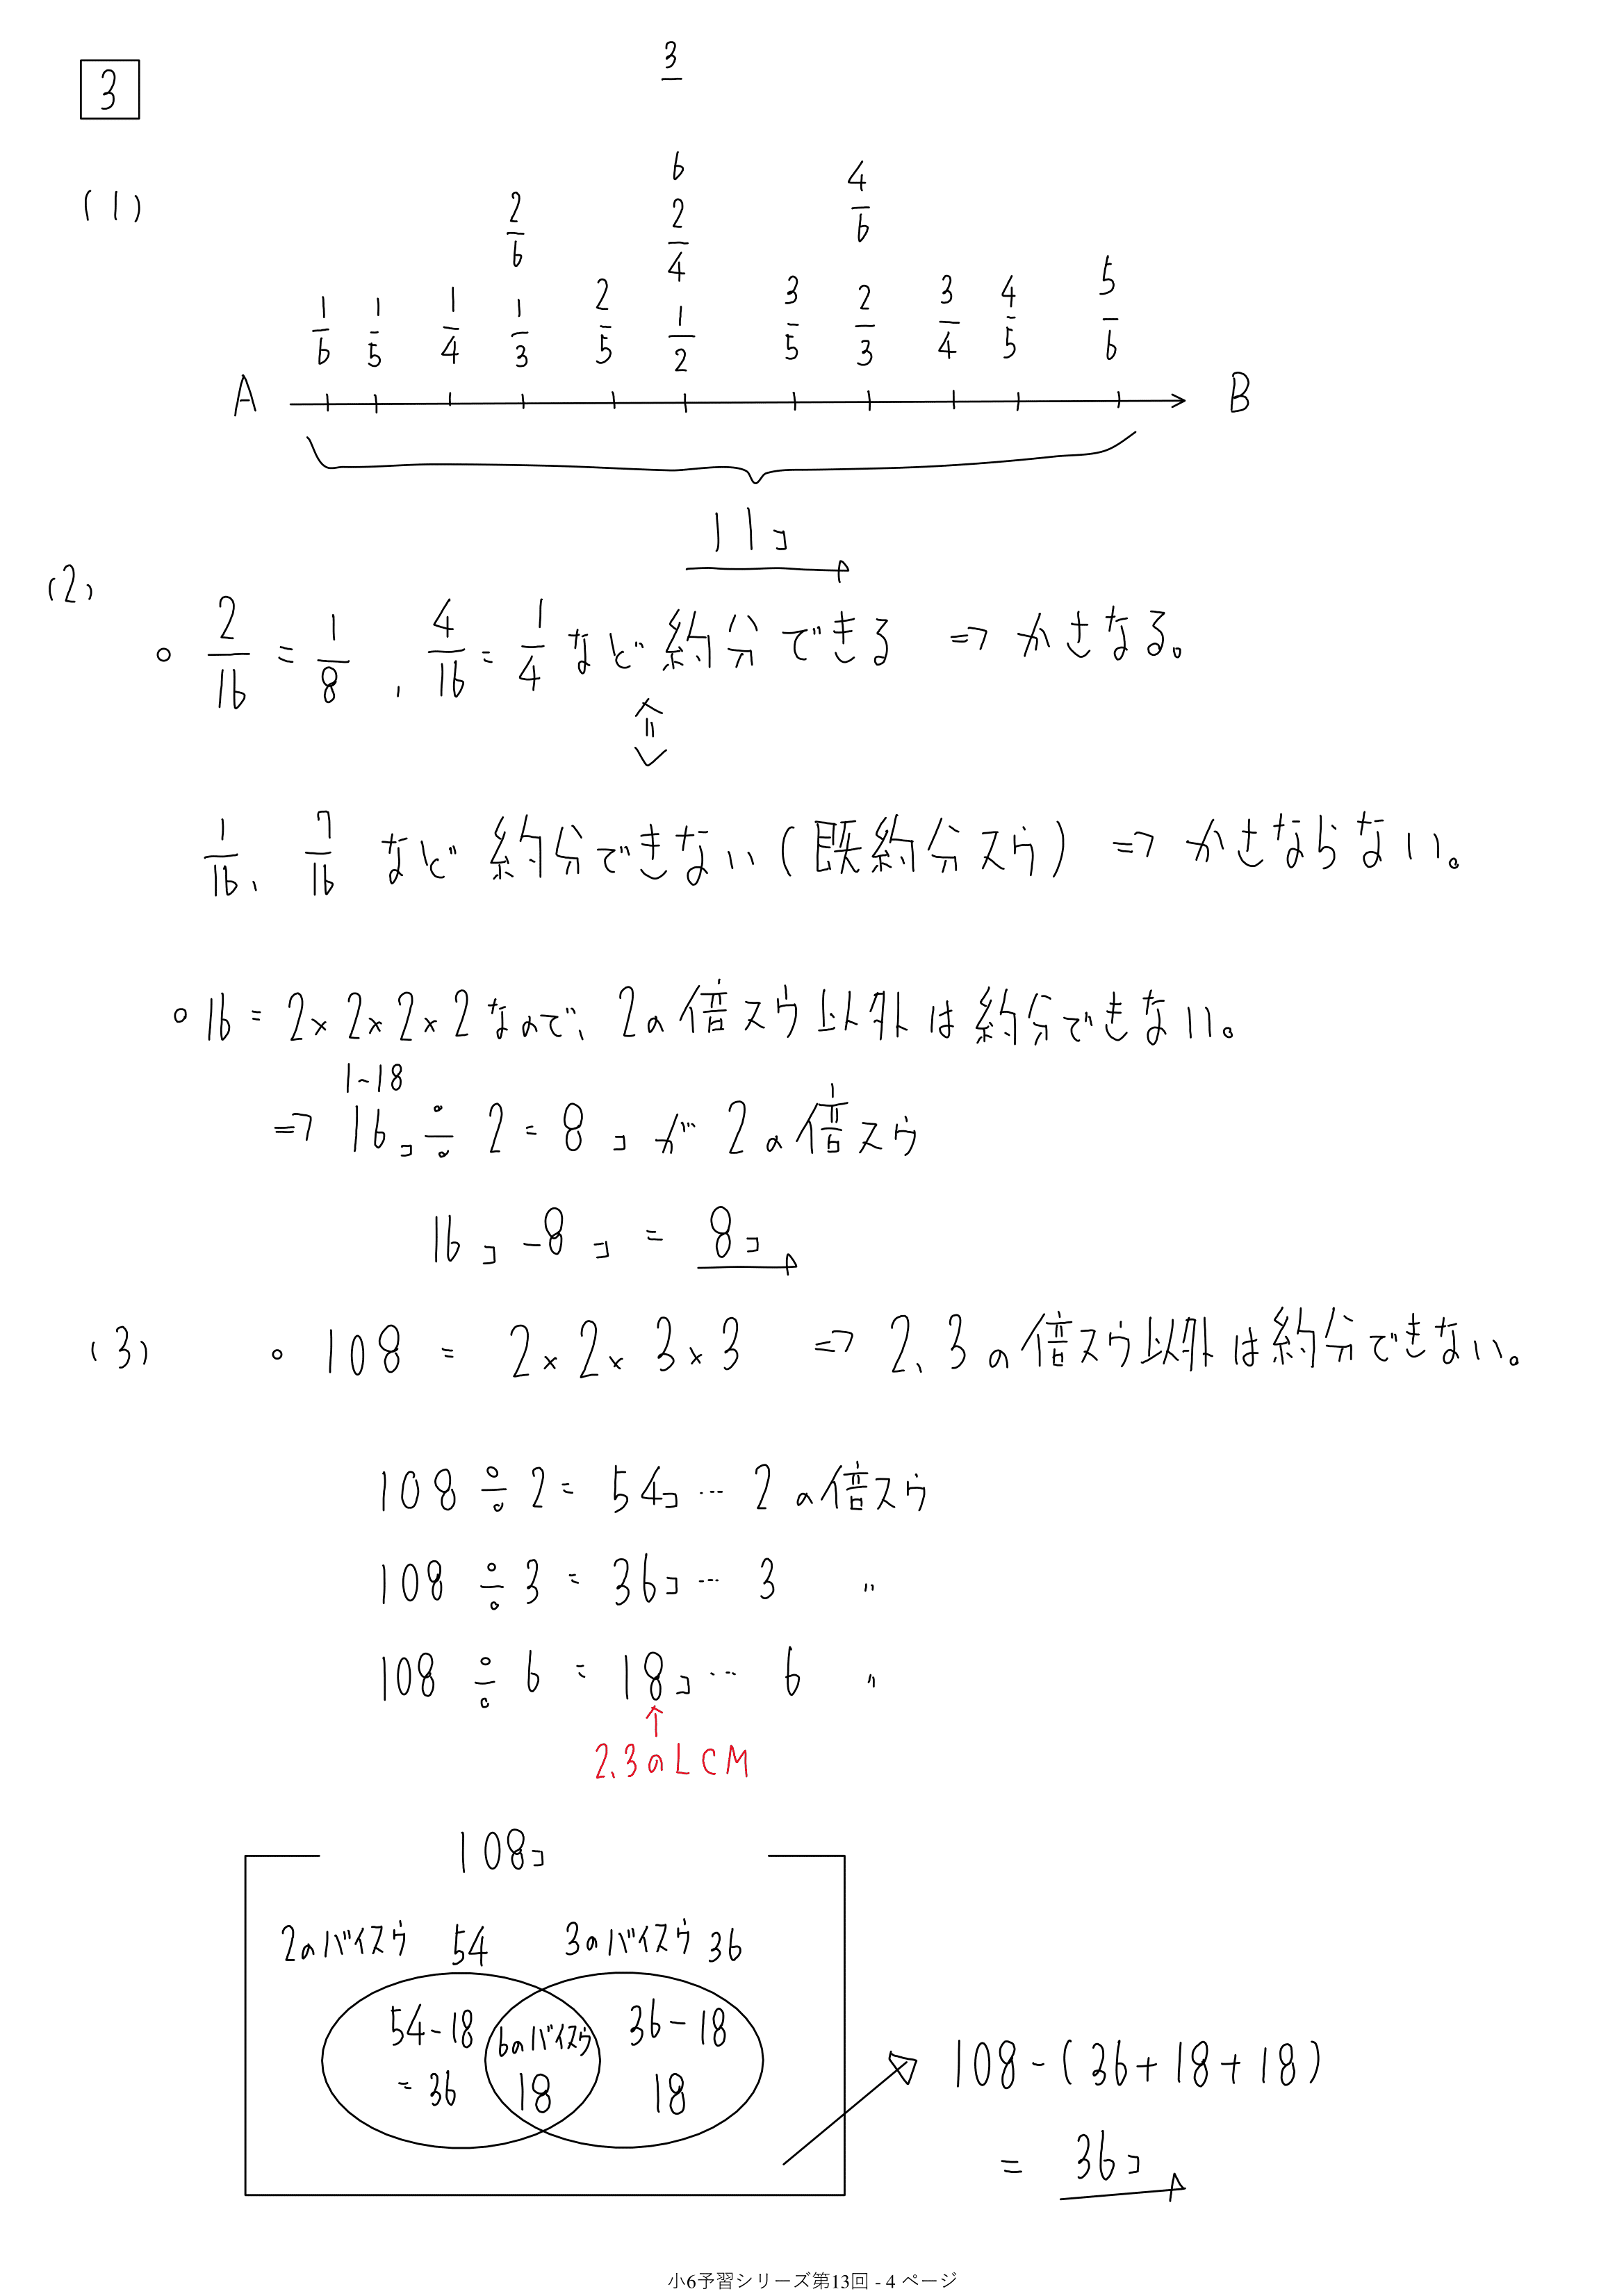 3
(1)
3/
6
2/6 2/4 4/6
1/6 1/5 1/4 1/3 2/5 1/2 3/5 2/3 3/4 4/5 5/6
A B
11コ
(2)
○ 2/16 = 1/8 , 4/16 = 1/4 など約分できる ⇒ かさなる。
1/16、 7/16 など 約分できない (既約分スウ) ⇒ かさならない。
○ 16 = 2×2×2×2なので、2の倍スウ以外は約分できない。
1~18
⇒ 16コ÷2=8コが2の倍スウ
16コ-8コ = 8コ
(3) ○ 108 = 2×2×3×3 ⇒ 2、3の倍スウ以外は約分できない。
108÷2= 54コ… 2の倍スウ
108÷3= 36コ… 3 〃
108÷6= 18コ… 6 〃
↑
2、3のLCM
108コ
2のバイスウ 54 3のバイスウ 36
54-18 6のバイスウ 36-18
=36 18 18
108-(36+18+18)
= 36コ
小6予習シリーズ第13回 - 4 ページ